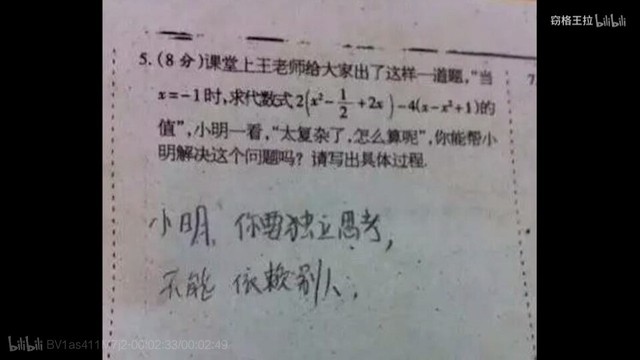 窃格王拉 bilibili
5.(8 分)课堂上王老师给大家出了这样一道题,"当
x=-1时,求代数式2(x²-1/2+2x)-4(x-x²+1)的
值",小明一看,"太复杂了,怎么算呢",你能帮小
明解决这个问题吗？请写出具体过程.
7
小明，你要独立思考,
不能 依赖别人.
bilibili